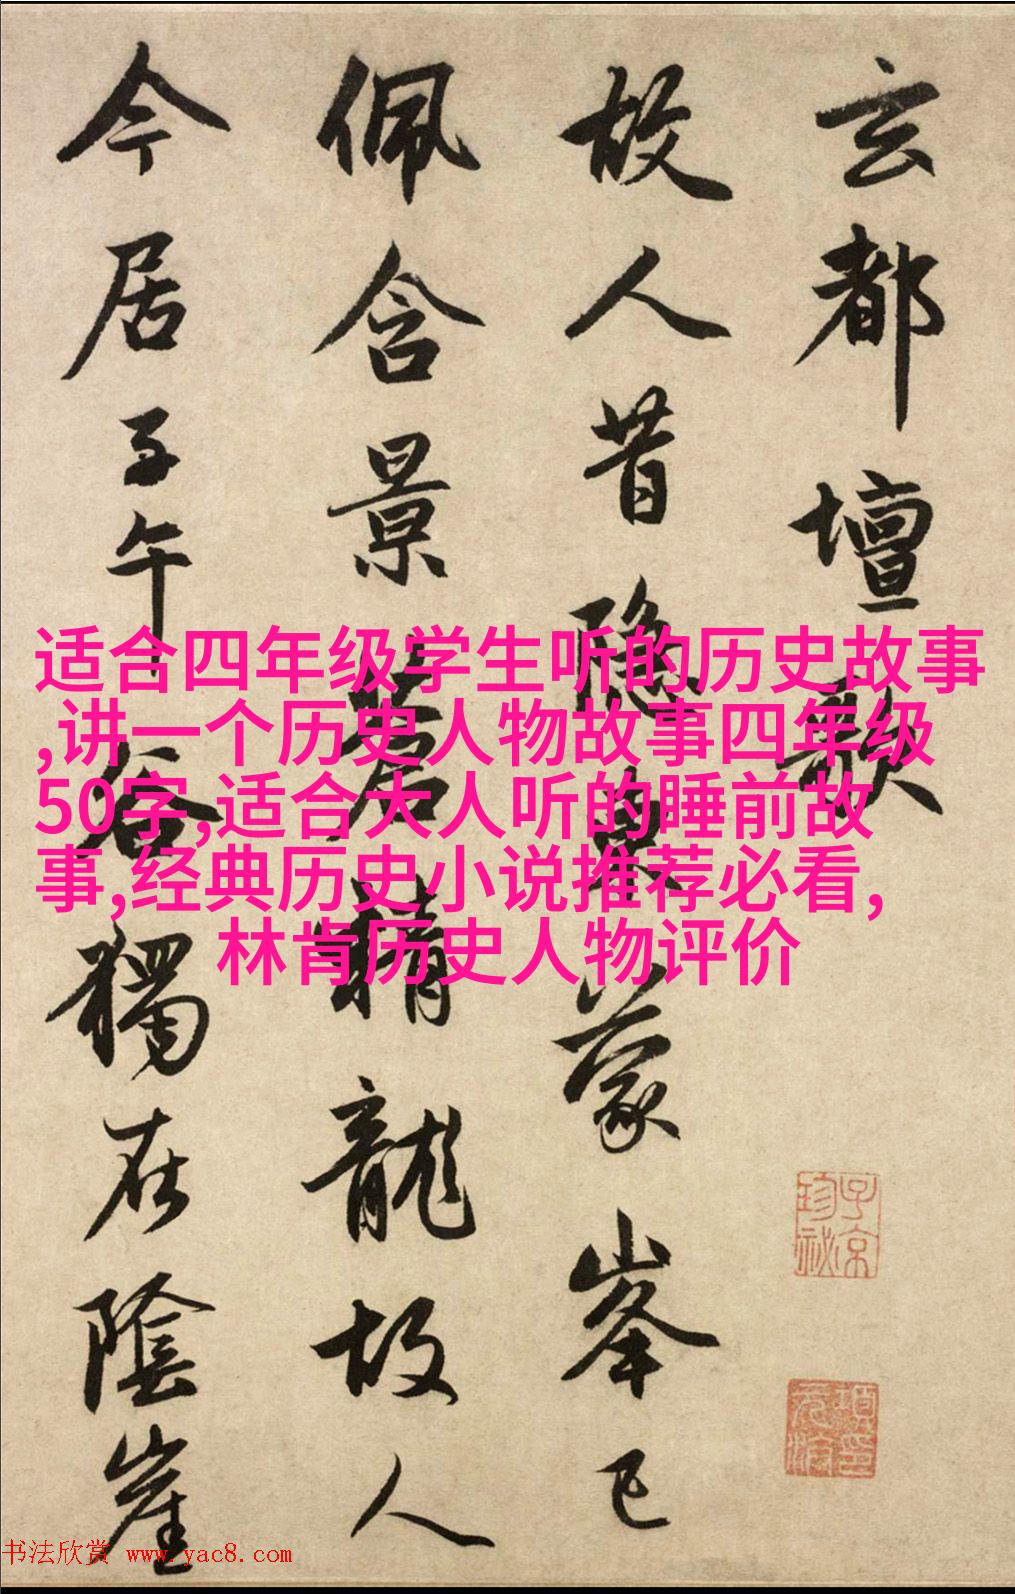 玄都壇歌
故人昔隱東蒙峯已
佩含景蒼精龍故人
今居子午谷獨在陰崖
适合四年级学生听的历史故事
,讲一个历史人物故事四年级
50字,适合大人听的睡前故
事,经典历史小说推荐必看,
林肯历史人物评价
子京
珍祕
书法欣赏 www.yac8.com